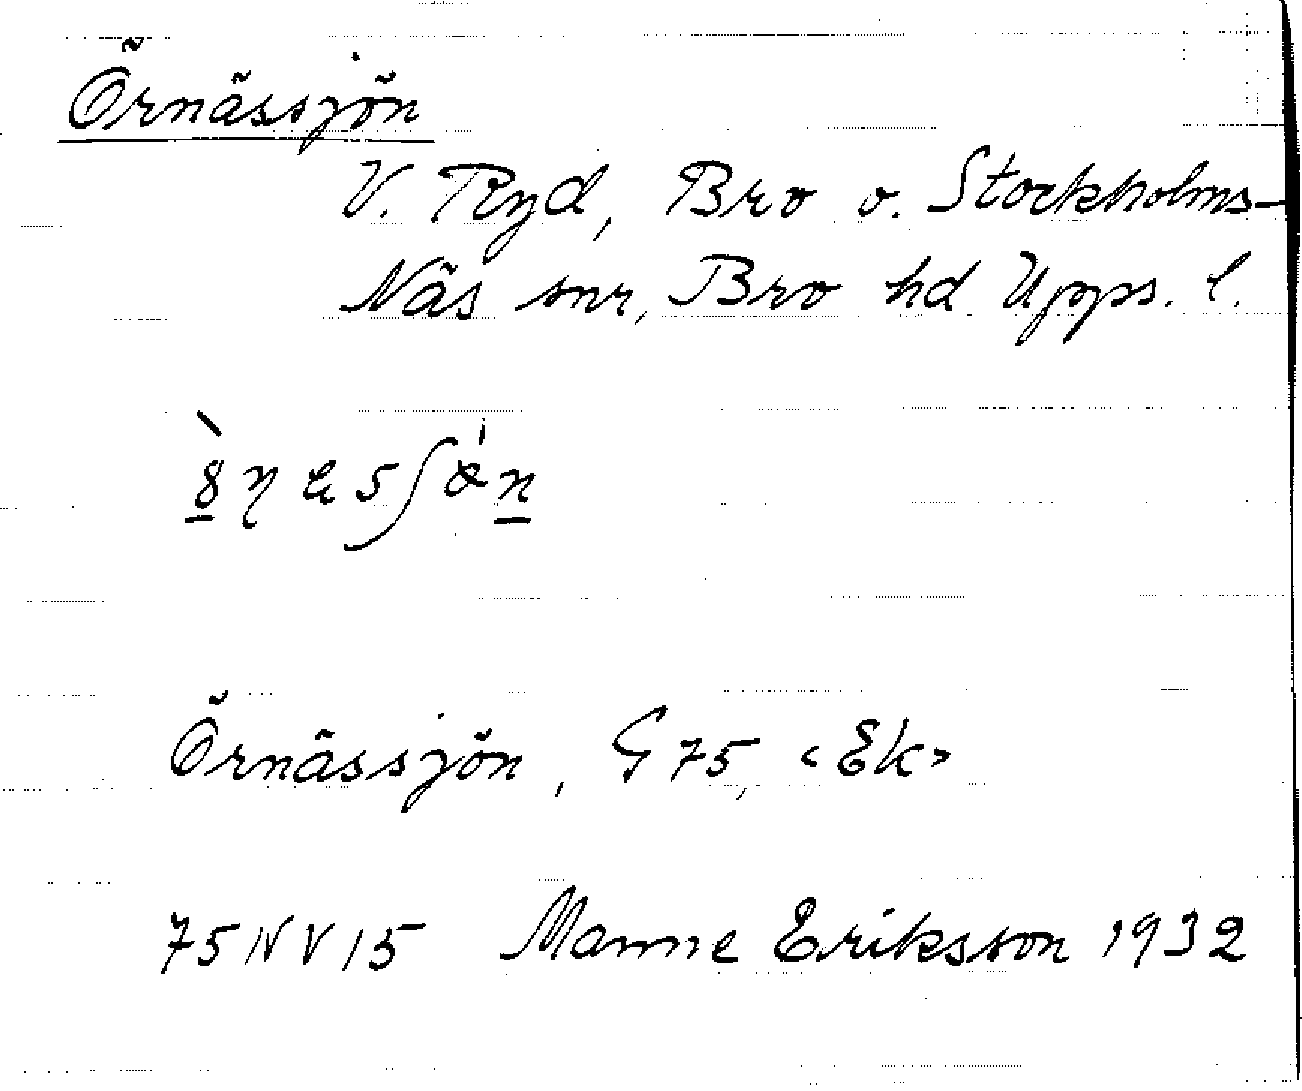 Örnässjön
V. Ryd, Bro o. Stockholms-
Näs snr, Bro hd Upps. l.
Örnässjön, G 75, <Ek>
75 NV 15 Manne Eriksson 1932